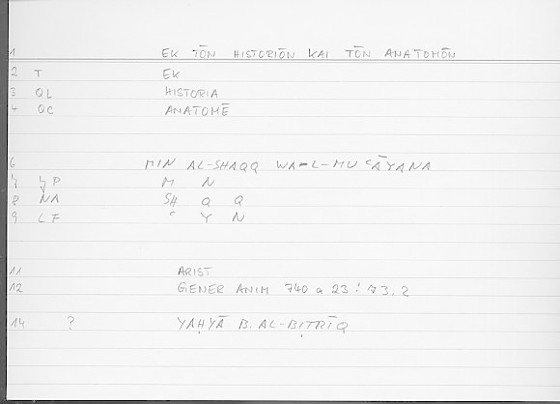 1 EK TŌN HISTORIŌN KAI TŌN ANATOMŌN
2 T EK
3 QL HISTORIA
4 QC ANATOMĒ
6 MIN AL-SHAQQ WA-L-MUʿĀYANA
7 P M N
8 NA SH Q Q
9 LF ʿ Y N
11 ARIST
12 GENER ANIM 740 a 23 : 73.2
14 ? YAḤYĀ B. AL-BIṬRĪQ